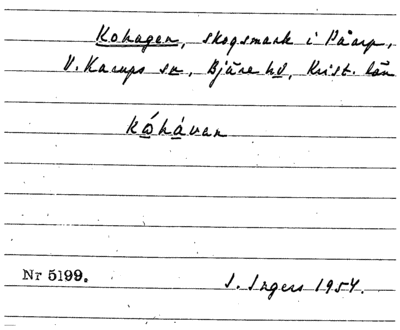 Kohagen, skogsmark i Påarp,
V. Karups sn, Bjäre hd, Krist. län
kǿhávan
Nr 5199.
I. Ingers 1954.